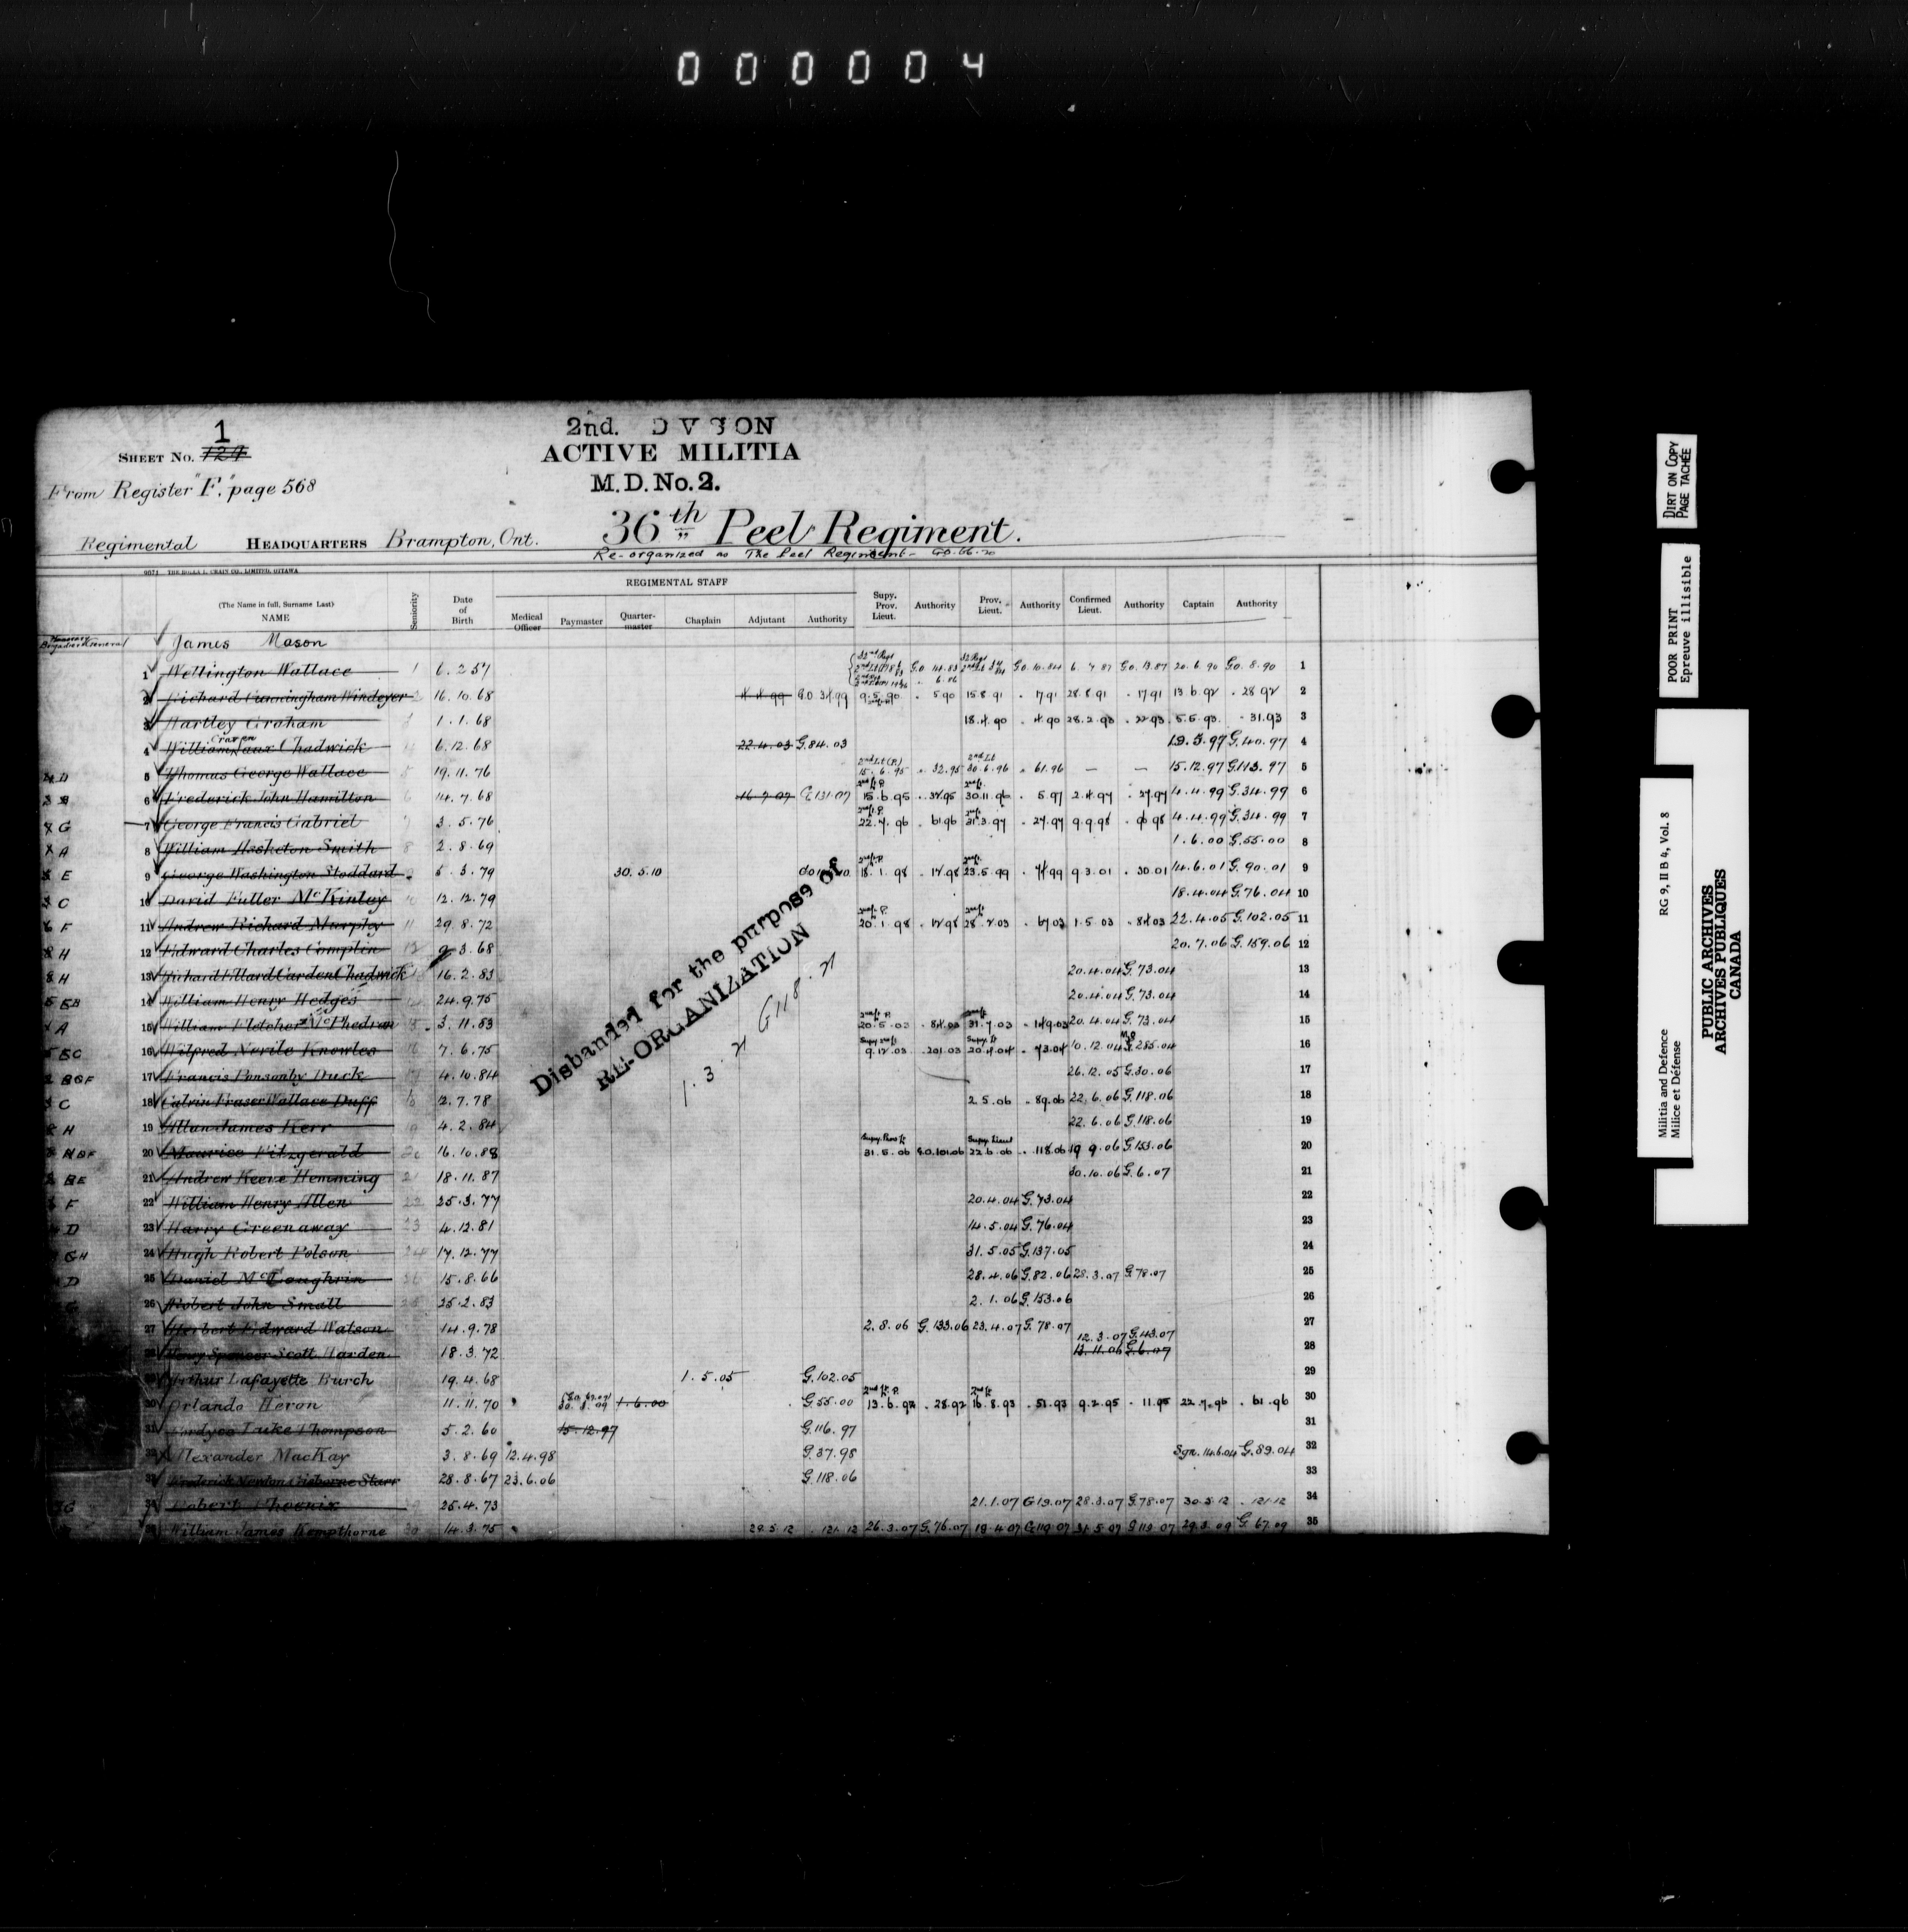 000004
1
2nd. D V S ON
SHEET No. 124
ACTIVE MILITIA
From Register "F." page 568
M.D. No. 2.
36th Peel Regiment.
Regimental HEADQUARTERS Brampton, Ont.
Re-organized as The Peel Regiment - G.O. 66.20
9671 THE ROLLA L. CRAIN CO., LIMITED, OTTAWA
REGIMENTAL STAFF
(The Name in full, Surname Last) NAME Seniority Date of Birth Medical Officer Paymaster Quarter-master Chaplain Adjutant Authority Supy. Prov. Lieut. Authority Prov. Lieut. Authority Confirmed Lieut. Authority Captain Authority
Honorary Brigadier General James Mason
1 Wellington Wallace 1 6.2.57 G.O. 10.84 6.7.87 G.O. 13.87 20.6.90 G.O. 8.90 1
2 Richard Cunningham Windeyer 2 16.10.68 G.O. 34.99 9.5.90 . 5.90 15.8.91 . 17.91 28.8.91 . 17.91 13.6.92 . 28.92 2
3 Hartley Graham 3 1.1.68 18.4.90 . 4.90 28.2.93 . 22.93 5.5.93 . 31.93 3
4 William Craven Chadwick 4 6.12.68 22.4.03 G.84.03 19.5.97 G.40.97 4
D 5 Thomas George Wallace 5 19.11.76 2nd Lt (P.) 15.6.95 . 32.95 2nd Lt 30.6.96 . 61.96 — — 15.12.97 G.113.97 5
B 6 Frederick John Hamilton 6 14.7.68 16.7.07 G.131.07 15.6.95 . 32.95 30.11.96 . 5.97 2.4.97 . 27.97 4.4.99 G.34.99 6
G 7 George Francis Gabriel 7 3.5.76 22.7.96 . 61.96 31.3.97 . 27.97 9.9.98 4.4.99 G.34.99 7
A 8 William Hesketon Smith 8 2.8.69 1.6.00 G.55.00 8
E 9 George Washington Stoddard 5.3.79 30.5.10 18.1.98 . 12.98 23.5.99 . 44.99 9.3.01 . 30.01 14.6.01 G.90.01 9
C 10 David Fuller McKinley 10 12.12.79 18.4.04 G.76.04 10
F 11 Andrew Richard Murphy 11 29.8.72 20.1.98 . 12.98 28.2.03 . 67.03 1.5.03 . 84.03 22.4.05 G.102.05 11
H 12 Edward Charles Complin 12 9.3.68 20.7.06 G.159.06 12
H 13 Richard Ellard Carden Chadwick 16.2.83 20.4.04 G.73.04 13
EB 14 William Henry Hedges 24.9.75 20.4.04 G.73.04 14
A 15 William Fletcher McPhedran 15 3.11.83 20.5.03 . 84.03 31.7.03 . 149.03 20.4.04 G.73.04 15
BC 16 Wilfred Nerile Knowles 16 7.6.75 9.12.03 . 201.03 20.4.04 . 73.04 10.12.04 G.285.04 16
BGF 17 Francis Ponsonby Duck 17 4.10.84 26.12.05 G.30.06 17
C 18 Calvin Fraser Wallace Duff 18 2.7.78 2.5.06 . 89.06 22.6.06 G.118.06 18
H 19 Allan James Kerr 19 4.2.84 22.6.06 G.118.06 19
20 Maurice Fitzgerald 20 16.10.88 31.5.06 G.O.101.06 Supy. Lieut 22.6.06 . 118.06 19.9.06 G.153.06 20
BE 21 Andrew Keene Hemming 21 18.11.87 30.10.06 G.6.07 21
F 22 William Henry Allen 22 25.3.77 20.4.04 G.73.04 22
D 23 Harry Greenaway 23 4.12.81 14.5.04 G.76.04 23
GH 24 Hugh Robert Polson 24 17.12.77 31.5.05 G.137.05 24
D 25 Daniel McCoughrin 15.8.66 28.4.06 G.82.06 28.3.07 G.78.07 25
G 26 Robert John Small 25.2.83 2.1.06 G.153.06 26
27 Herbert Edward Watson 14.9.78 2.8.06 G.133.06 23.4.07 G.78.07 27
12.3.07 G.43.07
28 Henry Spencer Scott Harden 18.3.72 13.11.06 G.6.07 28
29 Arthur Lafayette Burch 19.4.68 1.5.05 G.102.05 29
30 Orlando Heron 11.11.70 30.8.09 1.6.00 G.55.00 2nd Lt P. 13.6.92 . 28.92 2nd Lt 16.8.93 . 51.93 9.2.95 . 11.95 22.7.96 . 61.96 30
31 Fordyce Luke Thompson 5.2.60 15.12.97 G.116.97 31
32 Alexander MacKay 3.8.69 12.4.98 G.37.98 Sgn. 14.6.04 G.89.04 32
33 Frederick Newton Gisborne Starr 28.8.67 23.6.06 G.118.06 33
G 34 Robert Phoenix 25.4.73 21.1.07 G.19.07 28.3.07 G.78.07 30.5.12 . 121.12 34
35 William James Kempthorne 30 14.3.75 29.5.12 . 121.12 26.3.07 G.76.07 19.4.07 G.119.07 31.5.07 G.119.07 29.3.09 G.67.09 35
Disbanded for the purpose of
RE-ORGANIZATION
1.3.21 G118.21
DIRT ON COPY
PAGE TACHÉE
POOR PRINT
Epreuve illisible
Militia and Defence RG 9, II B 4, Vol. 8
Milice et Défense
PUBLIC ARCHIVES
ARCHIVES PUBLIQUES
CANADA